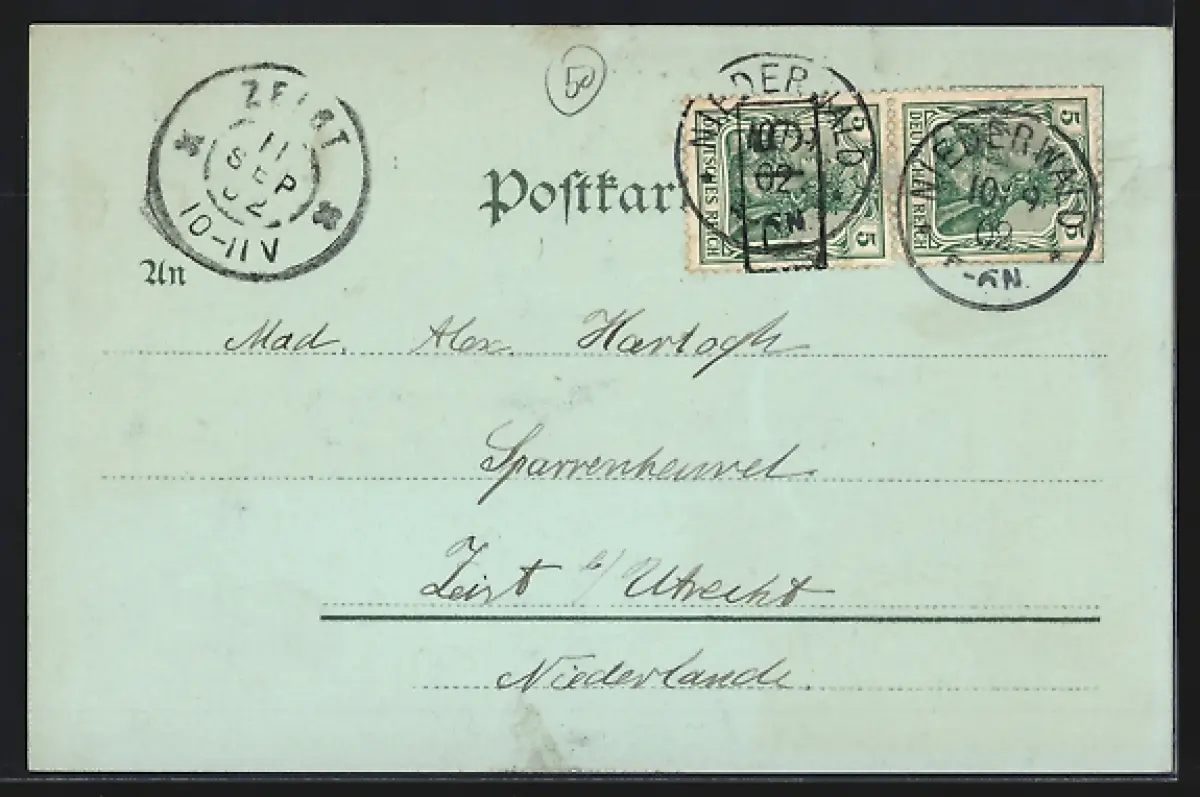 50
ZEIST
11
SEP
02
10-11V
Postkar
NIEDERWALD
02
5
5
DEUTSCHES REICH
5
5
DEUTSCHES REICH
NIEDERWALD
10 9
02
-6N.
An
Mad. Alex. Hartogh
Sparrenheuvel
Zeist b/ Utrecht
Niederlande.